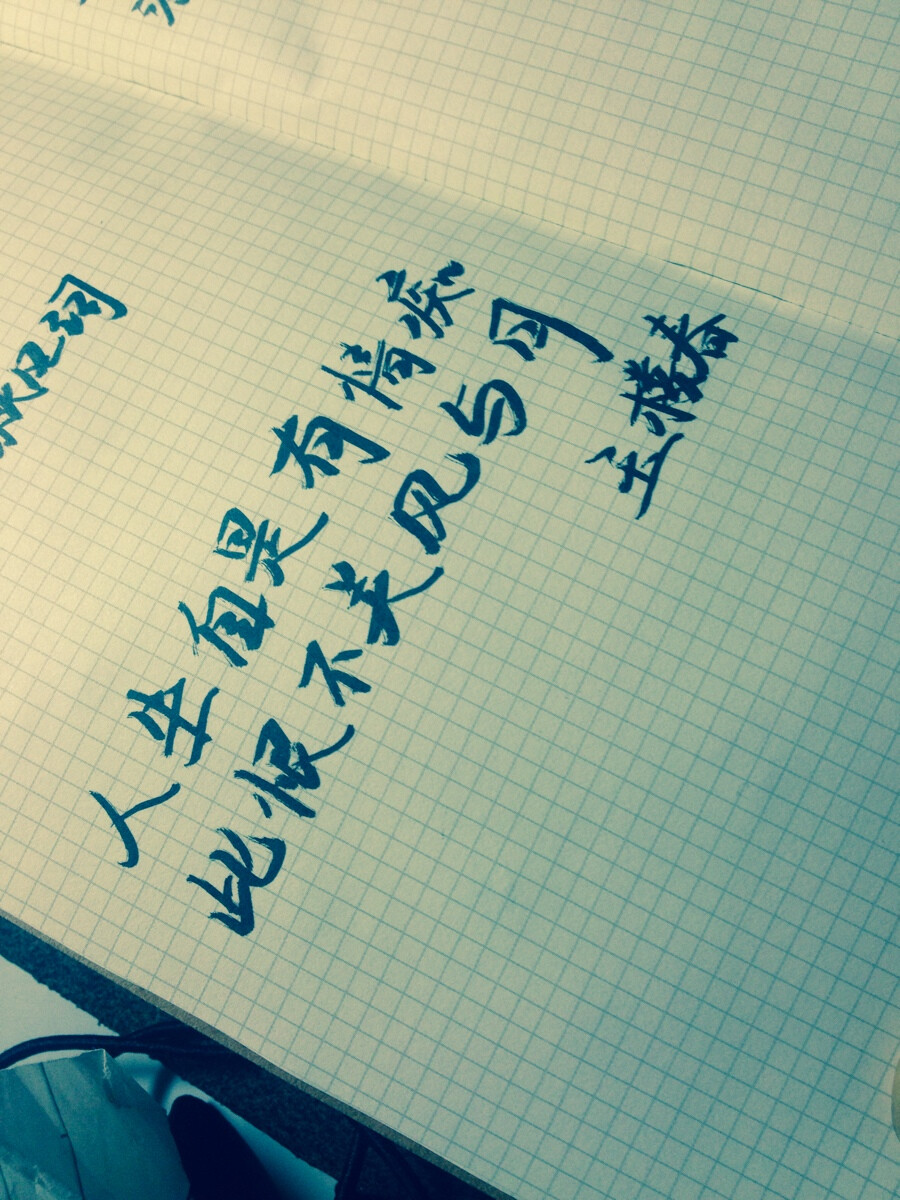 秋风词
人生自是有情痴
此恨不关风与月
玉楼春